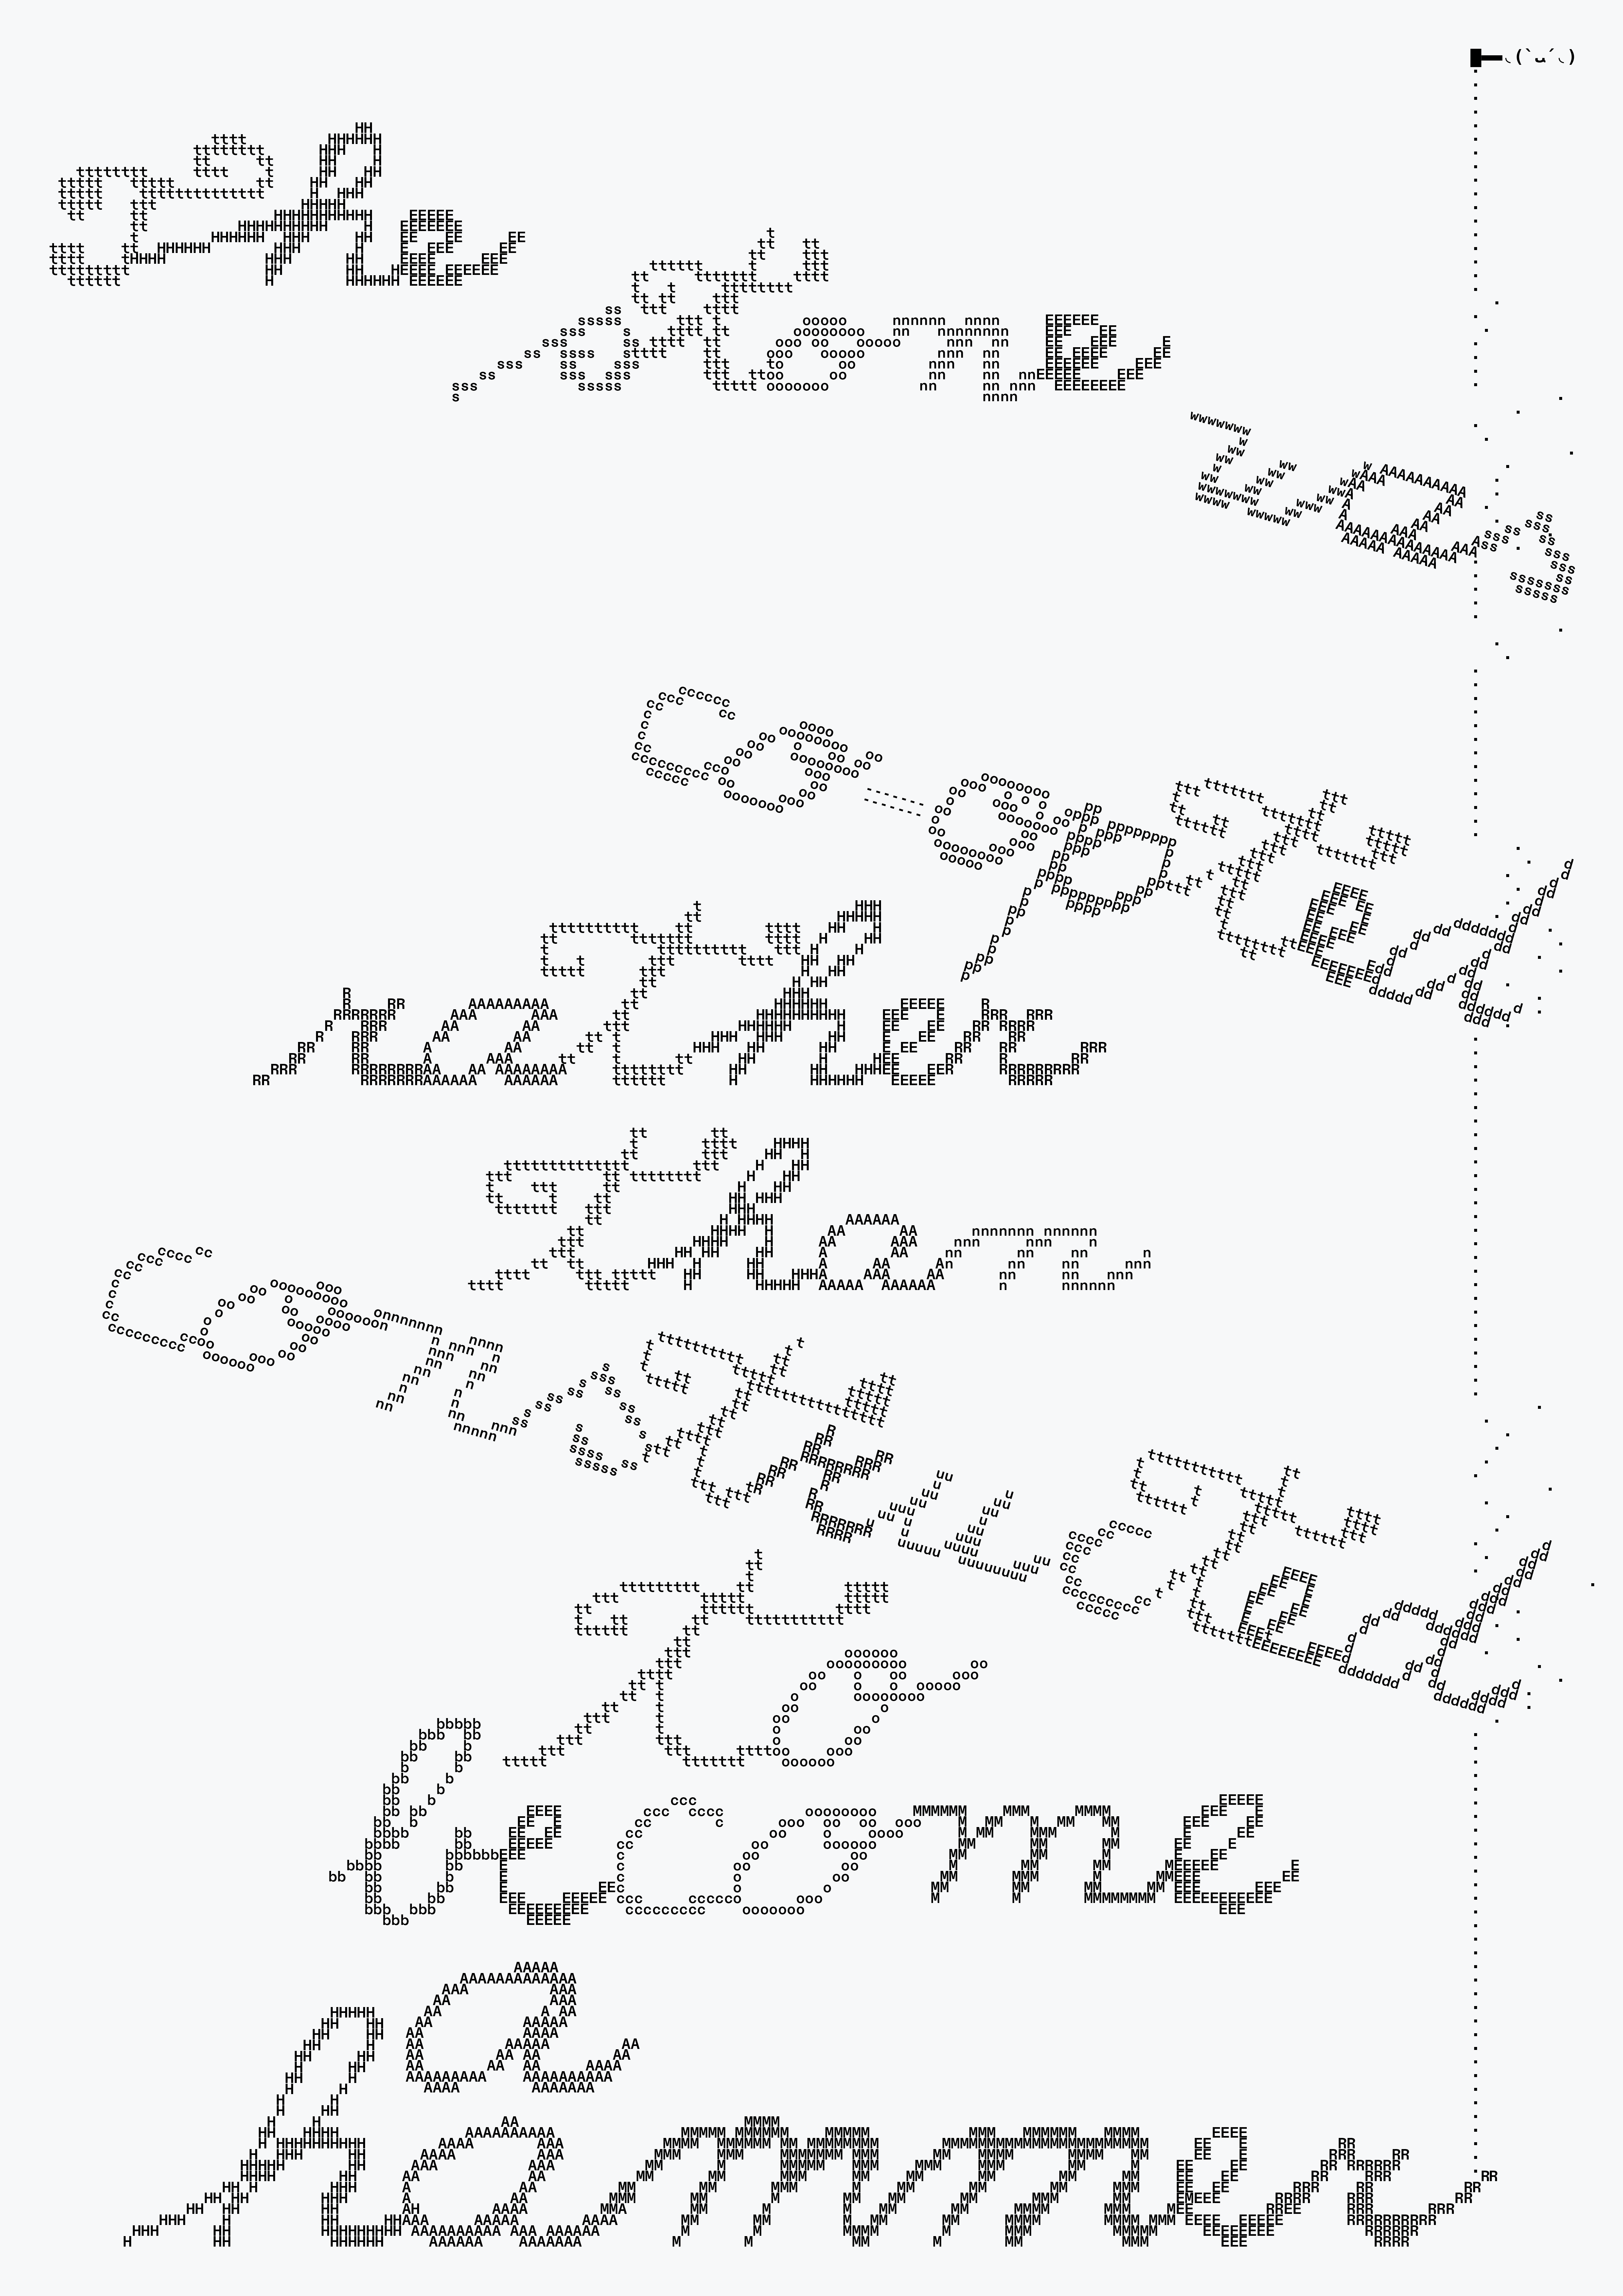 the
stone
was
co-opted
rather
than
constructed
to
become
a
hammer